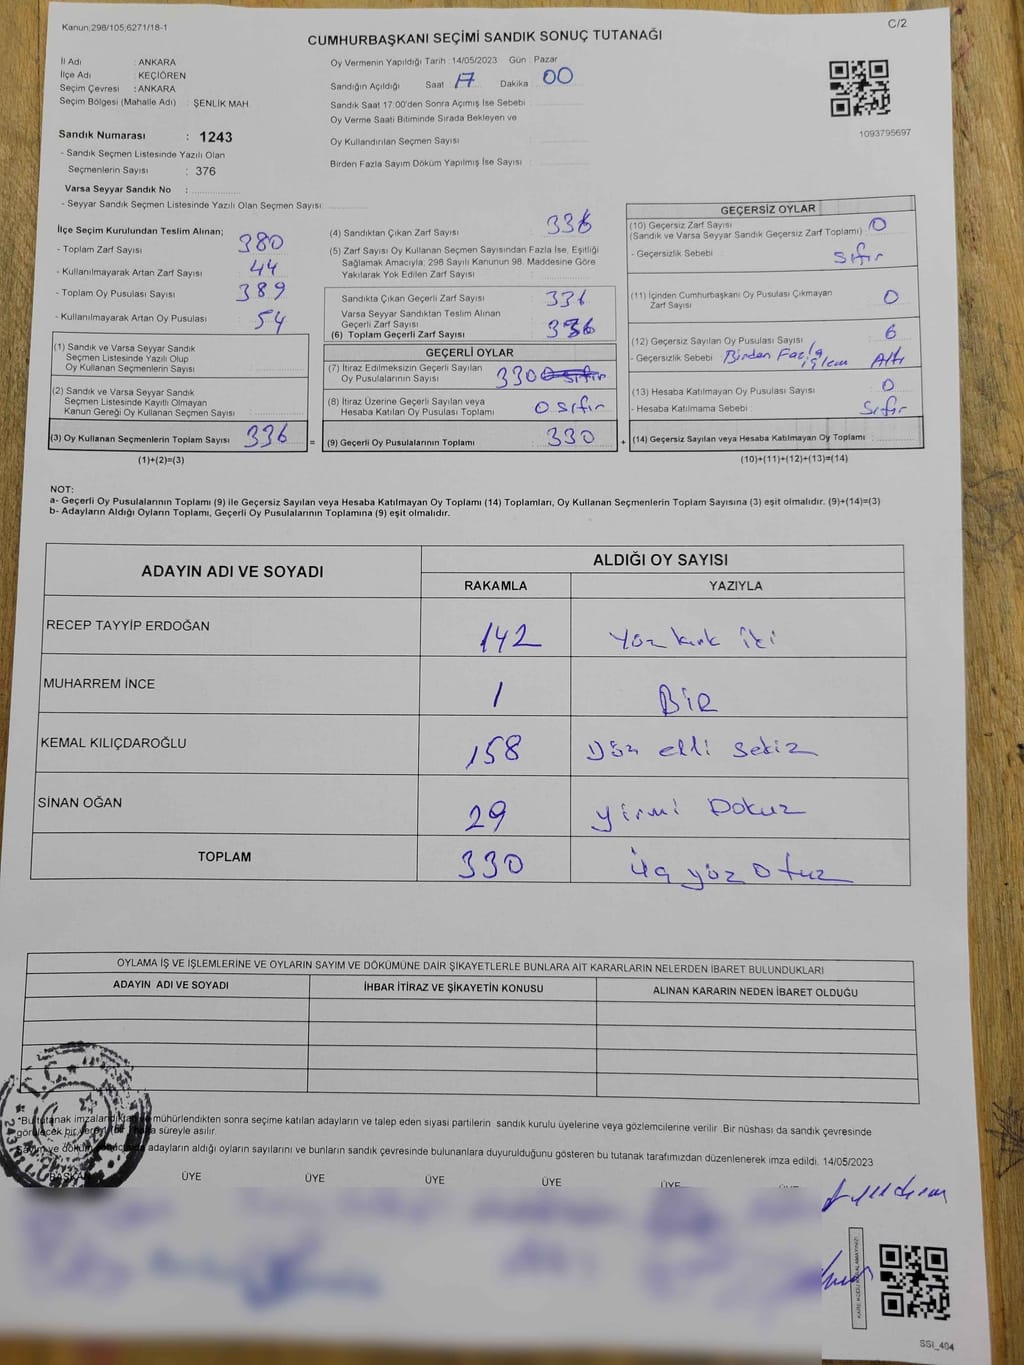 Kanun;298/105,6271/18-1
C/2
CUMHURBAŞKANI SEÇİMİ SANDIK SONUÇ TUTANAĞI
İl Adı : ANKARA
İlçe Adı : KEÇİÖREN
Seçim Çevresi : ANKARA
Seçim Bölgesi (Mahalle Adı) : ŞENLİK MAH.
Sandık Numarası : 1243
- Sandık Seçmen Listesinde Yazılı Olan
Seçmenlerin Sayısı : 376
Varsa Seyyar Sandık No :
- Seyyar Sandık Seçmen Listesinde Yazılı Olan Seçmen Sayısı:
Oy Vermenin Yapıldığı Tarih : 14/05/2023 Gün : Pazar
Sandığın Açıldığı Saat 17 Dakika 00
Sandık Saat 17:00'den Sonra Açımış İse Sebebi :
Oy Verme Saati Bitiminde Sırada Bekleyen ve
Oy Kullandırılan Seçmen Sayısı :
Birden Fazla Sayım Döküm Yapılmış İse Sayısı :
1093795697
İlçe Seçim Kurulundan Teslim Alınan;
- Toplam Zarf Sayısı : 380
- Kullanılmayarak Artan Zarf Sayısı : 44
- Toplam Oy Pusulası Sayısı : 389
- Kullanılmayarak Artan Oy Pusulası : 54
(1) Sandık ve Varsa Seyyar Sandık
Seçmen Listesinde Yazılı Olup
Oy Kullanan Seçmenlerin Sayısı :
(2) Sandık ve Varsa Seyyar Sandık
Seçmen Listesinde Kayıtlı Olmayan
Kanun Gereği Oy Kullanan Seçmen Sayısı :
(3) Oy Kullanan Seçmenlerin Toplam Sayısı : 336 =
(1)+(2)=(3)
(4) Sandıktan Çıkan Zarf Sayısı : 336
(5) Zarf Sayısı Oy Kullanan Seçmen Sayısından Fazla İse, Eşitliği
Sağlamak Amacıyla; 298 Sayılı Kanunun 98. Maddesine Göre
Yakılarak Yok Edilen Zarf Sayısı :
Sandıkta Çıkan Geçerli Zarf Sayısı : 336
Varsa Seyyar Sandıktan Teslim Alınan
Geçerli Zarf Sayısı :
(6) Toplam Geçerli Zarf Sayısı : 336
GEÇERLİ OYLAR
(7) İtiraz Edilmeksizin Geçerli Sayılan
Oy Pusulalarının Sayısı : 330
(8) İtiraz Üzerine Geçerli Sayılan veya
Hesaba Katılan Oy Pusulası Toplamı : 0 sıfır
(9) Geçerli Oy Pusulalarının Toplamı : 330 +
GEÇERSİZ OYLAR
(10) Geçersiz Zarf Sayısı : 0
(Sandık ve Varsa Seyyar Sandık Geçersiz Zarf Toplamı)
- Geçersizlik Sebebi : sıfır
(11) İçinden Cumhurbaşkanı Oy Pusulası Çıkmayan
Zarf Sayısı : 0
(12) Geçersiz Sayılan Oy Pusulası Sayısı : 6
- Geçersizlik Sebebi : Birden Fazla işlem Altı
(13) Hesaba Katılmayan Oy Pusulası Sayısı : 0
- Hesaba Katılmama Sebebi : Sıfır
(14) Geçersiz Sayılan veya Hesaba Katılmayan Oy Toplamı :
(10)+(11)+(12)+(13)=(14)
NOT:
a- Geçerli Oy Pusulalarının Toplamı (9) ile Geçersiz Sayılan veya Hesaba Katılmayan Oy Toplamı (14) Toplamları, Oy Kullanan Seçmenlerin Toplam Sayısına (3) eşit olmalıdır. (9)+(14)=(3)
b- Adayların Aldığı Oyların Toplamı, Geçerli Oy Pusulalarının Toplamına (9) eşit olmalıdır.
ADAYIN ADI VE SOYADI ALDIĞI OY SAYISI
RAKAMLA YAZIYLA
RECEP TAYYİP ERDOĞAN 142 Yüz kırk iki
MUHARREM İNCE 1 Bir
KEMAL KILIÇDAROĞLU 158 Yüz elli sekiz
SİNAN OĞAN 29 yirmi Dokuz
TOPLAM 330 üç yüz otuz
OYLAMA İŞ VE İŞLEMLERİNE VE OYLARIN SAYIM VE DÖKÜMÜNE DAİR ŞİKAYETLERLE BUNLARA AİT KARARLARIN NELERDEN İBARET BULUNDUKLARI
ADAYIN ADI VE SOYADI İHBAR İTİRAZ VE ŞİKAYETİN KONUSU ALINAN KARARIN NEDEN İBARET OLDUĞU
*Bu tutanak mühürlendikten sonra seçime katılan adayların ve talep eden siyasi partilerin sandık kurulu üyelerine veya gözlemcilerine verilir. Bir nüshası da sandık çevresinde
süreyle asılır.
adayların aldığı oyların sayılarını ve bunların sandık çevresinde bulunanlara duyurulduğunu gösteren bu tutanak tarafımızdan düzenlenerek imza edildi. 14/05/2023
BAŞKAN ÜYE ÜYE ÜYE ÜYE ÜYE
SSI_404